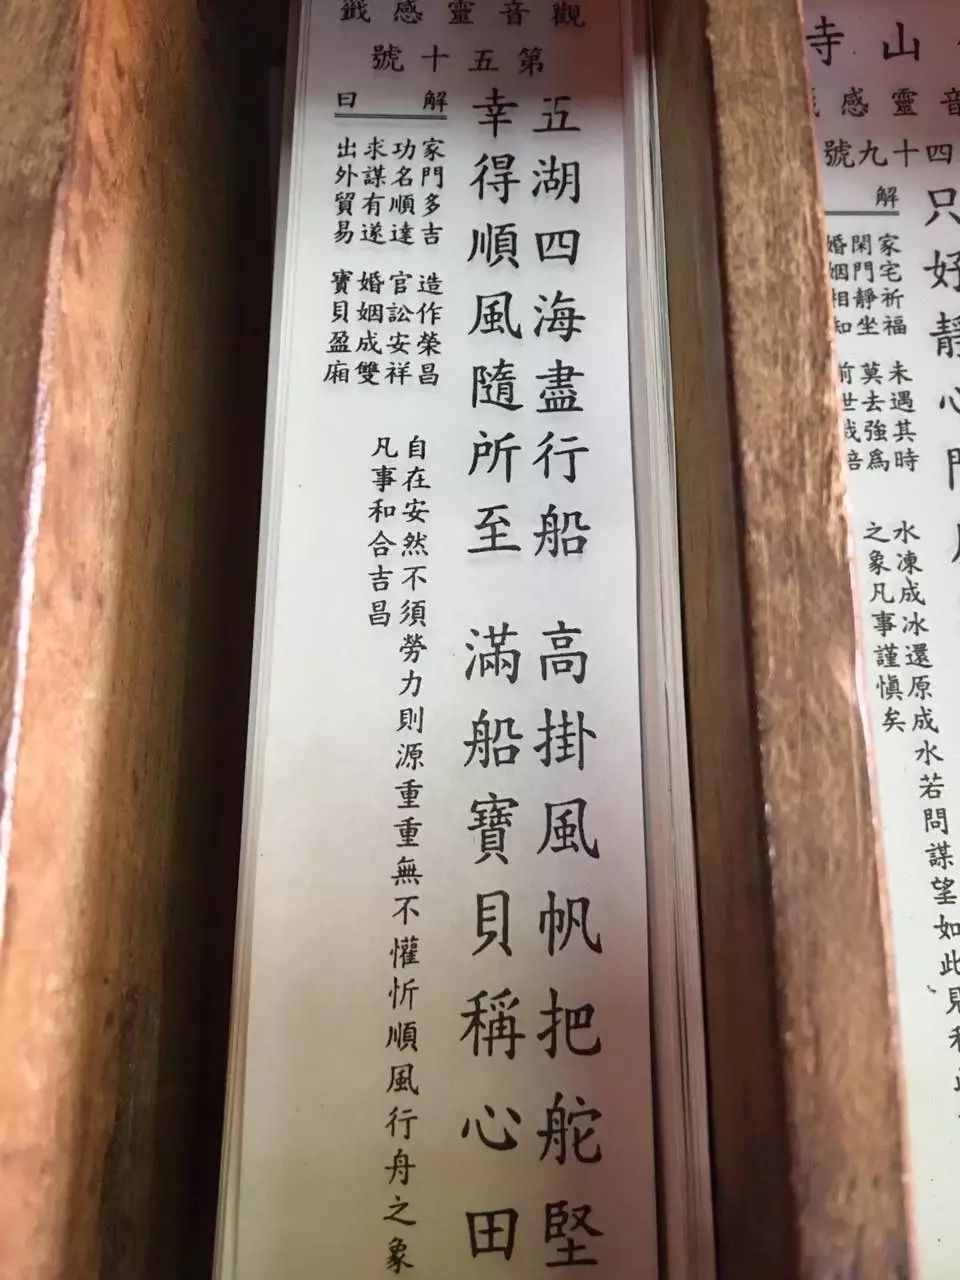 觀音靈感籤
第五十號
五湖四海盡行船 高掛風帆把舵堅
幸得順風隨所至 滿船寶貝稱心田
解曰
家門多吉 造作榮昌
功名順達 官訟安祥
求謀有遂 婚姻成雙
出外貿易 寶貝盈廂
自在安然不須勞力則源重重無不懽忻順風行舟之象
凡事和合吉昌
山寺
音靈感
四十九號
只好靜心
解
家宅祈福 未遇其時
閑門靜坐 莫去強為
婚姻相知 前世
水凍成冰還原成水若問謀望如此則
之象凡事謹慎矣